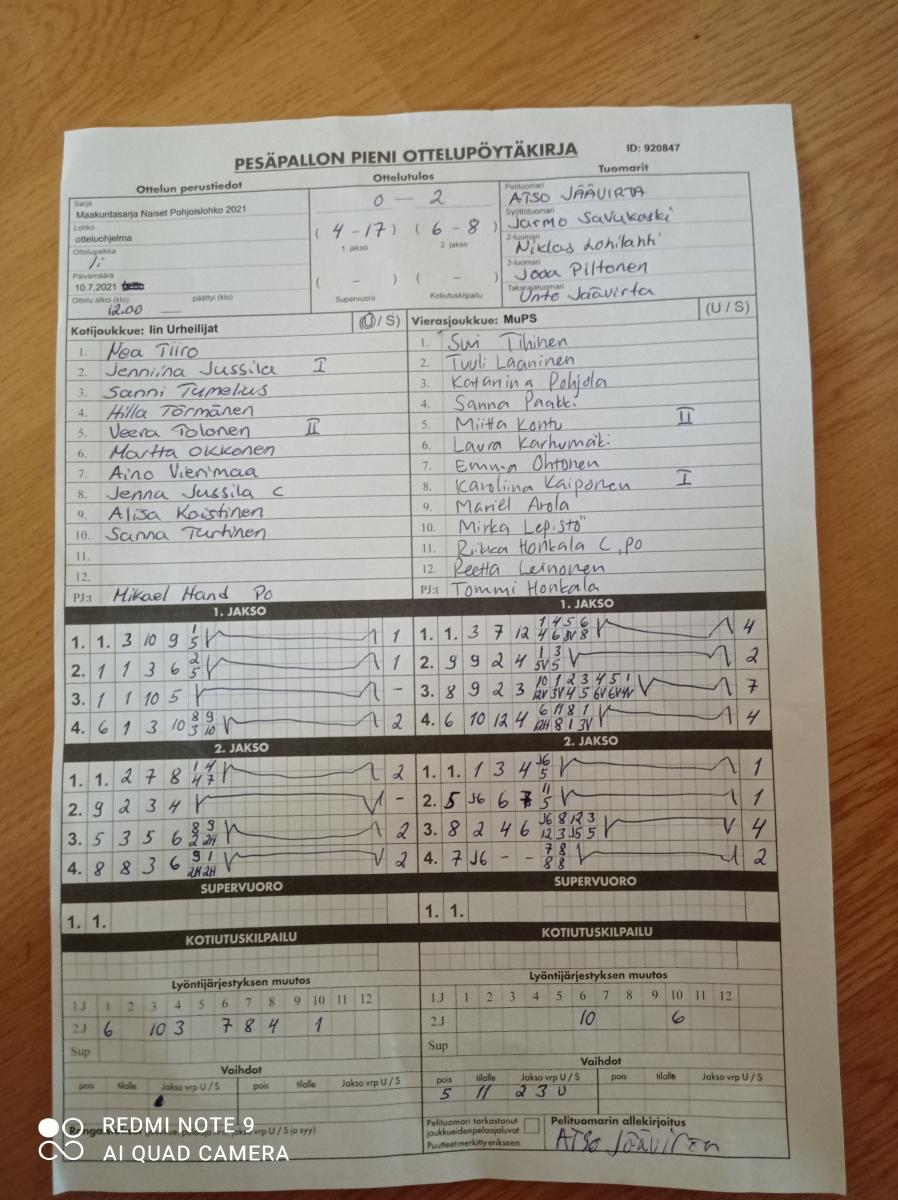 PESÄPALLON PIENI OTTELUPÖYTÄKIRJA
ID: 920847
Ottelun perustiedot
Sarja
Maakuntasarja Naiset Pohjoislohko 2021
Lohko
otteluohjelma
Ottelupaikka
Ii
Päivämäärä
10.7.2021
Ottelu alkoi (klo) päättyi (klo)
12.00
Ottelutulos
0 - 2
(4 - 17) (6 - 8)
1. jakso 2. jakso
( - ) ( - )
Supervuoro Kotiutuskilpailu
Tuomarit
Pelituomari
ATSO JÄÄVIRTA
Syöttötuomari
Jarmo Savukoski
2-tuomari
Niklas Lohilahti
3-tuomari
Jooa Piltonen
Takarajatuomari
Unto Jäävirta
Kotijoukkue: Iin Urheilijat (U / S)
1. Nea Tiiro
2. Jenniina Jussila I
3. Sanni Tumelius
4. Hilla Törmänen
5. Veera Tolonen II
6. Martta Okkonen
7. Aino Vierimaa
8. Jenna Jussila C
9. Alisa Koistinen
10. Sanna Turtinen
11.
12.
PJ:t Mikael Hand Po
Vierasjoukkue: MuPS (U / S)
1. Suvi Tihinen
2. Tuuli Laaninen
3. Katariina Pohjola
4. Sanna Paakki
5. Miitta Kontu II
6. Laura Karhumäki
7. Emma Ohtonen
8. Karoliina Kaiponen I
9. Mariel Arola
10. Mirka Lepistö
11. Riikka Honkala C, PO
12. Reetta Leinonen
PJ:t Tommi Honkala
1. JAKSO
1. 1. 3 10 9 1 1
5
2. 1 1 3 6 2 1
5
3. 1 1 10 5 -
4. 6 1 3 10 8 9 2
3 10
1. JAKSO
1. 1. 3 7 12 1 4 5 6 4
4 6 8V 8
2. 9 9 2 4 1 3 2
5V 5
3. 8 9 2 3 10 1 2 3 4 5 1 7
12V 3V 4 5 6V 6V 4V
4. 6 10 12 4 6 11 8 1 4
12H 8 1 3V
2. JAKSO
1. 1. 2 7 8 1 4 2
4 7
2. 9 2 3 4 -
3. 5 3 5 6 8 9 2
2 2H
4. 8 8 3 6 9 1 2
2H 2H
2. JAKSO
1. 1. 1 3 4 J6 1
5
2. 5 J6 6 11 1
5
3. 8 2 4 6 J6 8 12 3 4
12 3 J5 5
4. 7 J6 - - 7 8 2
8 8
SUPERVUORO
1. 1.
SUPERVUORO
1. 1.
KOTIUTUSKILPAILU
KOTIUTUSKILPAILU
Lyöntijärjestyksen muutos
1J 1 2 3 4 5 6 7 8 9 10 11 12
2J 6 10 3 7 8 4 1
Sup
Lyöntijärjestyksen muutos
1J 1 2 3 4 5 6 7 8 9 10 11 12
2J 10 6
Sup
Vaihdot
pois tilalle Jakso vrp U / S pois tilalle Jakso vrp U / S
Vaihdot
pois tilalle Jakso vrp U / S pois tilalle Jakso vrp U / S
5 11 2 3 U
vrp U / S ja syy)
Pelituomari tarkastanut
joukkueiden pelaajaluvat
Puutteet merkitty erikseen.
Pelituomarin allekirjoitus
REDMI NOTE 9
AI QUAD CAMERA